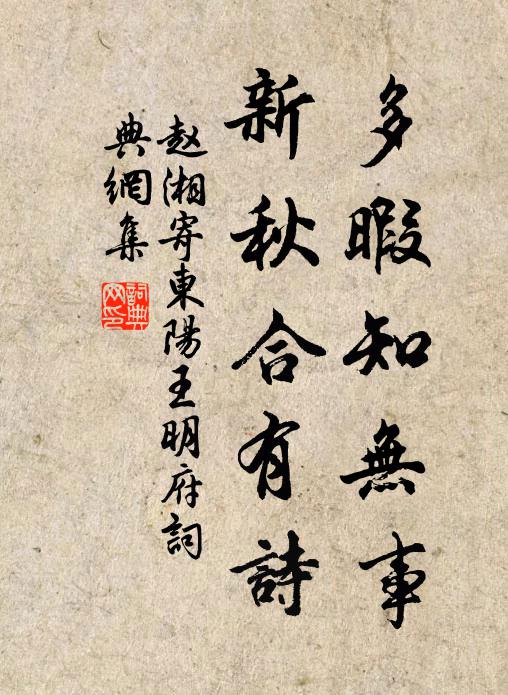 多暇知無事
新秋合有詩
赵湘寄東陽王明府詞
典網集
詞典
网印